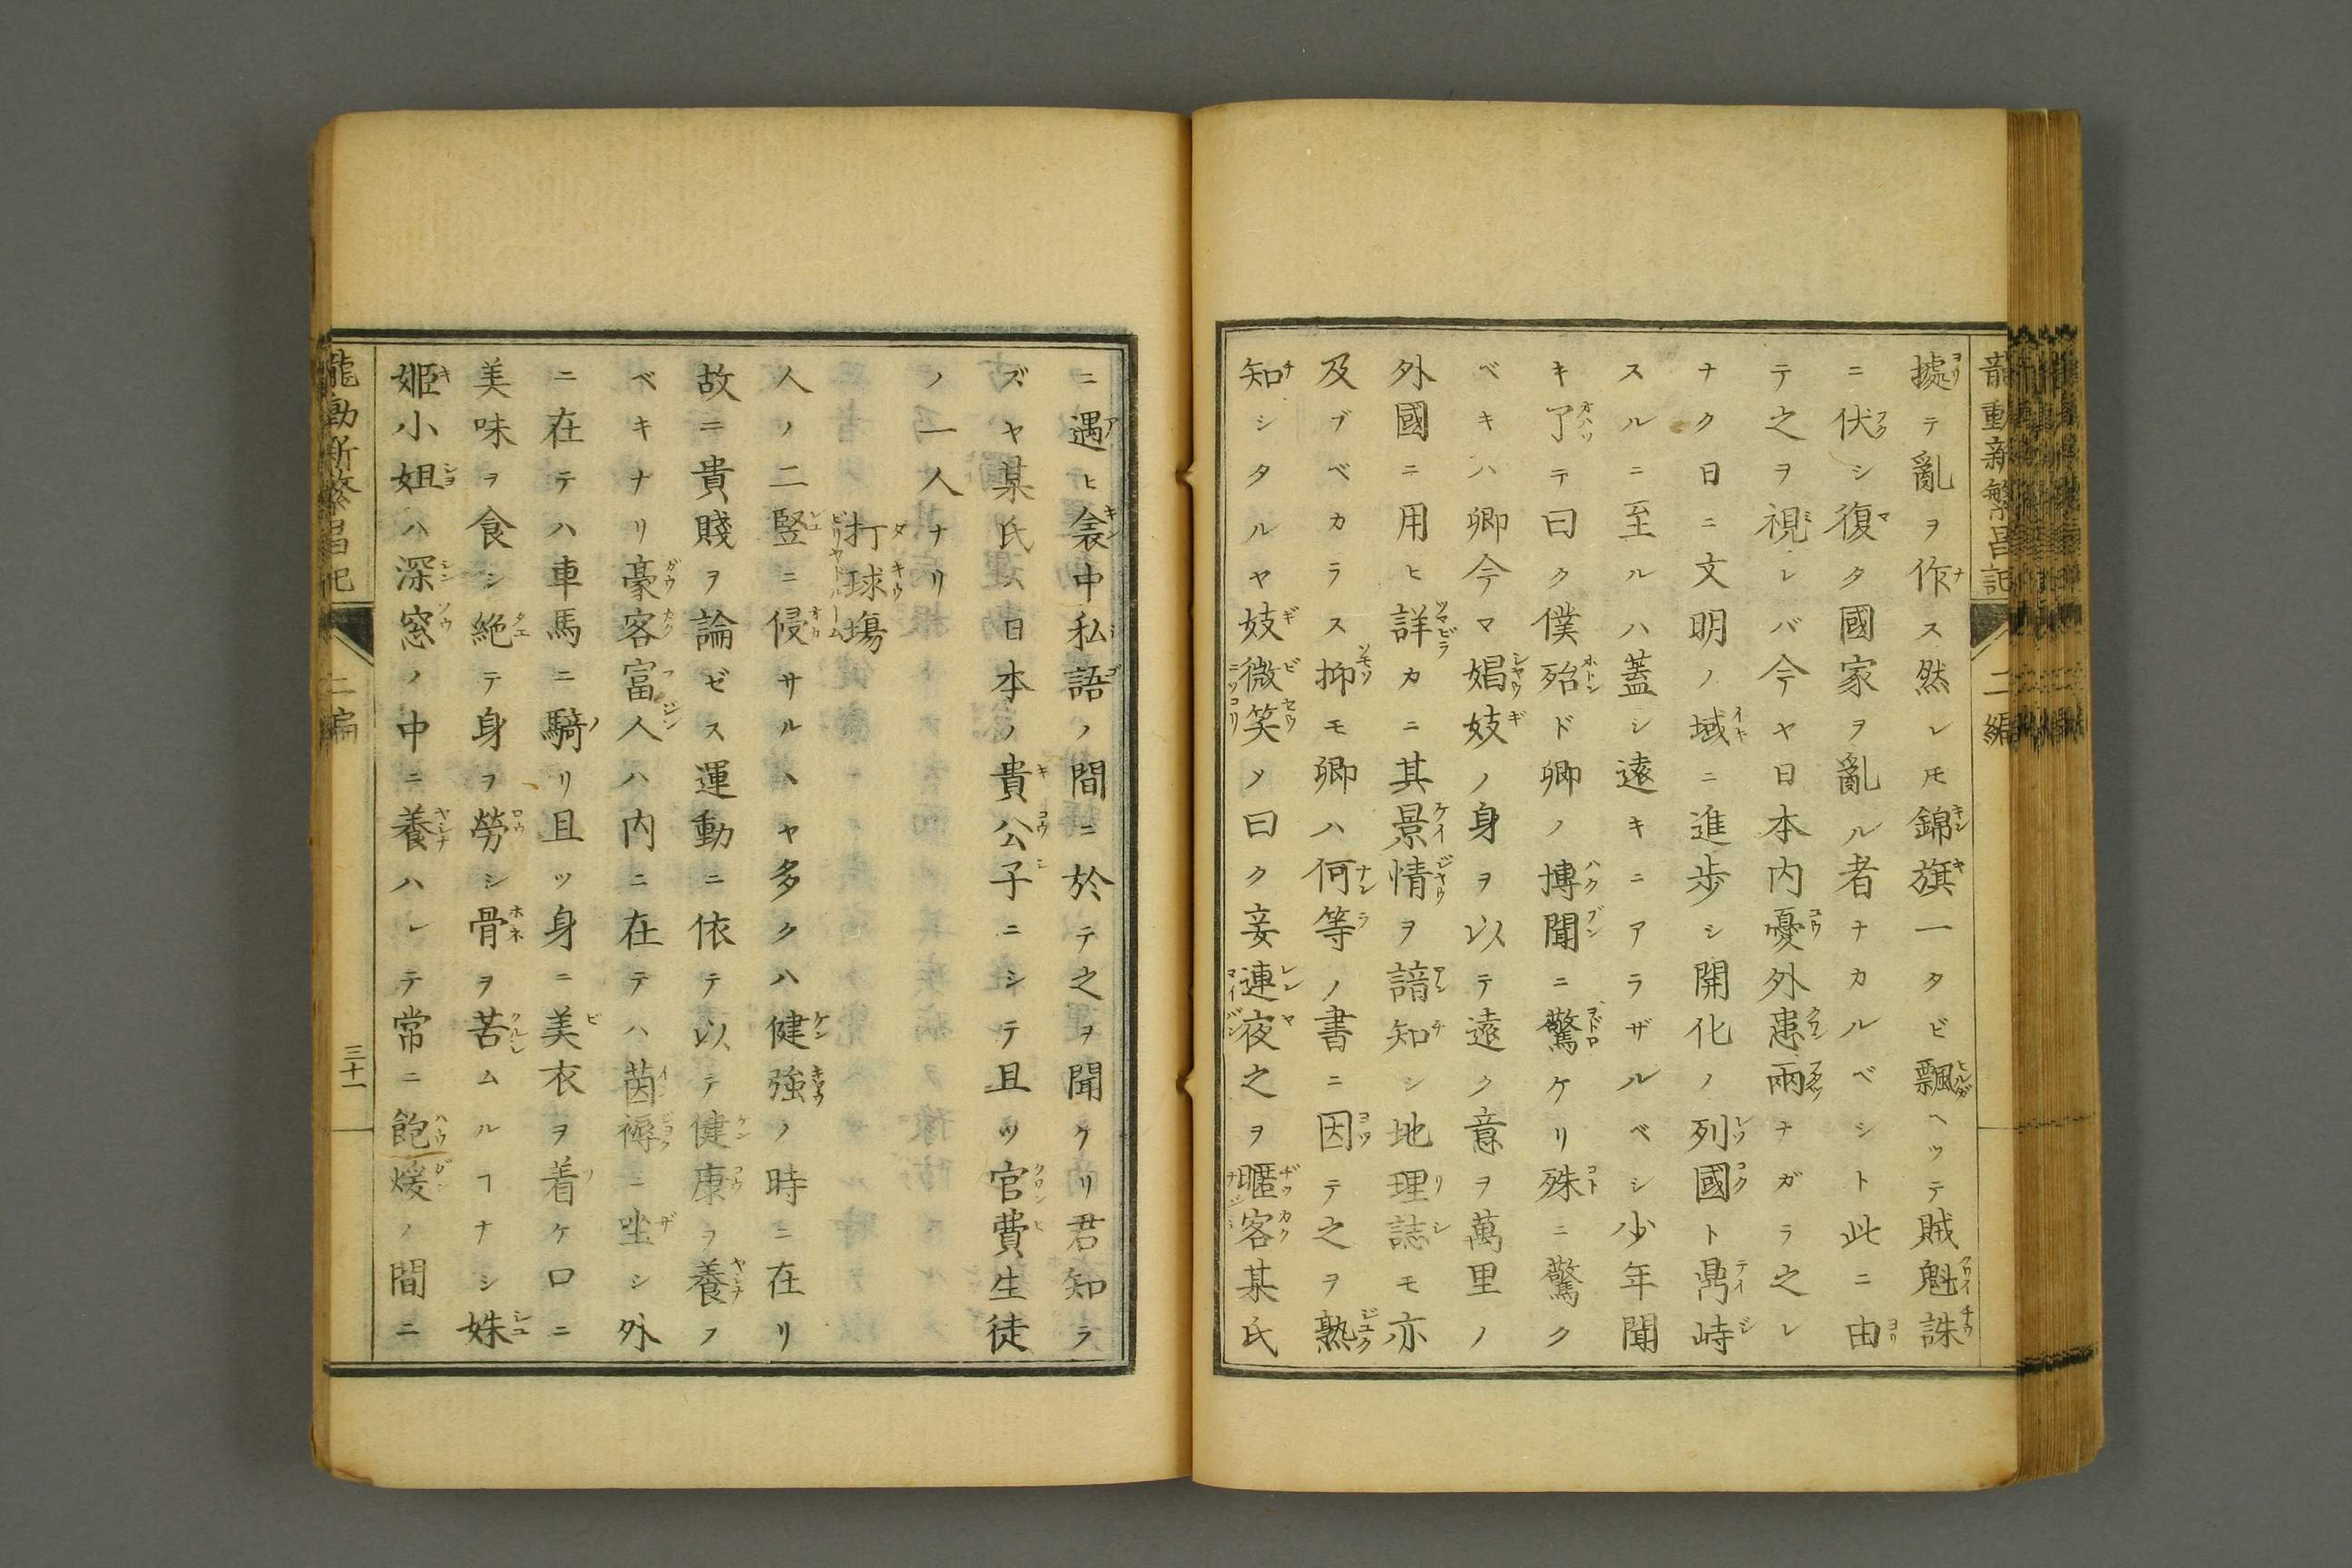 龍動新繁昌記 二編
據テ亂ヲ作ス然レ𪜈錦旗一タビ飄ヘツテ賊魁誅
ニ伏シ復タ國家ヲ亂ル者ナカルベシト此ニ由
テ之ヲ視レバ今ヤ日本内憂外患兩ナガラ之レ
ナク日ニ文明ノ域ニ進歩シ開化ノ列國ト鼎峙
スルニ至ルハ蓋シ遠キニアラザルベシ少年聞
キ了テ曰ク僕殆ド卿ノ博聞ニ驚ケリ殊ニ驚ク
ベキハ卿今マ娼妓ノ身ヲ以テ遠ク意ヲ萬里ノ
外國ニ用ヒ詳カニ其景情ヲ諳知シ地理誌モ亦
及ブベカラス抑モ卿ハ何等ノ書ニ因テ之ヲ熟
知シタルヤ妓微笑〆曰ク妾連夜之ヲ暱客某氏
ニ遇ヒ衾中私語ノ間ニ於テ之ヲ聞ケリ君知ラ
ズヤ某氏ハ日本ノ貴公子ニシテ且ツ官費生徒
ノ一人ナリ
打球塲
人ノ二竪ニ侵サルヽヤ多クハ健強ノ時ニ在リ
故ニ貴賤ヲ論ゼス運動ニ依テ以テ健康ヲ養フ
ベキナリ豪客富人ハ内ニ在テハ茵褥ニ坐シ外
ニ在テハ車馬ニ騎リ且ツ身ニ美衣ヲ着ケ口ニ
美味ヲ食シ絶テ身ヲ勞シ骨ヲ苦ムルヿナシ姝
姬小姐ハ深窓ノ中ニ養ハレテ常ニ飽煖ノ間ニ
龍動新繁昌記 二編 三十一